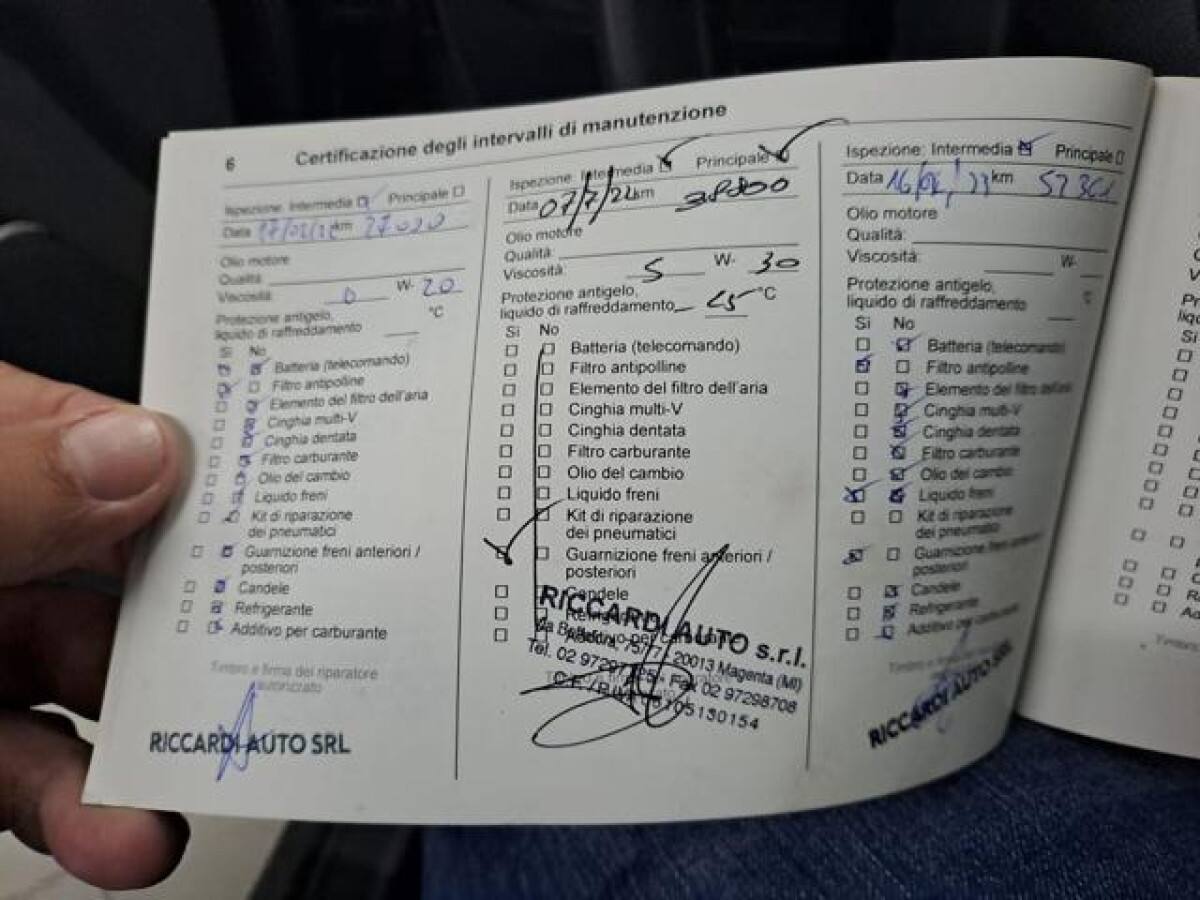 6 Certificazione degli intervalli di manutenzione
Ispezione: Intermedia Principale
Data 17/02/22 km 27020
Olio motore
Qualità:
Viscosità: 0 W- 20
Protezione antigelo,
liquido di raffreddamento °C
Si No
Batteria (telecomando)
Filtro antipolline
Elemento del filtro dell'aria
Cinghia multi-V
Cinghia dentata
Filtro carburante
Olio del cambio
Liquido freni
Kit di riparazione
dei pneumatici
Guarnizione freni anteriori /
posteriori
Candele
Refrigerante
Additivo per carburante
Timbro e firma del riparatore
autorizzato
RICCARDI AUTO SRL
Ispezione: Intermedia Principale
Data 07/7/22 km 38800
Olio motore
Qualità:
Viscosità: 5 W- 30
Protezione antigelo,
liquido di raffreddamento °C
Si No
Batteria (telecomando)
Filtro antipolline
Elemento del filtro dell'aria
Cinghia multi-V
Cinghia dentata
Filtro carburante
Olio del cambio
Liquido freni
Kit di riparazione
dei pneumatici
Guarnizione freni anteriori /
posteriori
Candele
RICCARDI AUTO s.r.l.
75/77 - 20013 Magenta (MI)
Fax 02 97298708
Ispezione: Intermedia Principale
Data km
Olio motore
Qualità:
Viscosità: W-
Protezione antigelo,
liquido di raffreddamento
Si No
Batteria (telecomando)
Filtro antipolline
Elemento del filtro dell'aria
Cinghia multi-V
Cinghia dentata
Filtro carburante
Olio del cambio
Liquido freni
Kit di riparazione
dei pneumatici
Guarnizione freni anteriori /
posteriori
Candele
Refrigerante
Additivo per carburante
Timbro e firma del riparatore
RICCARDI AUTO SRL